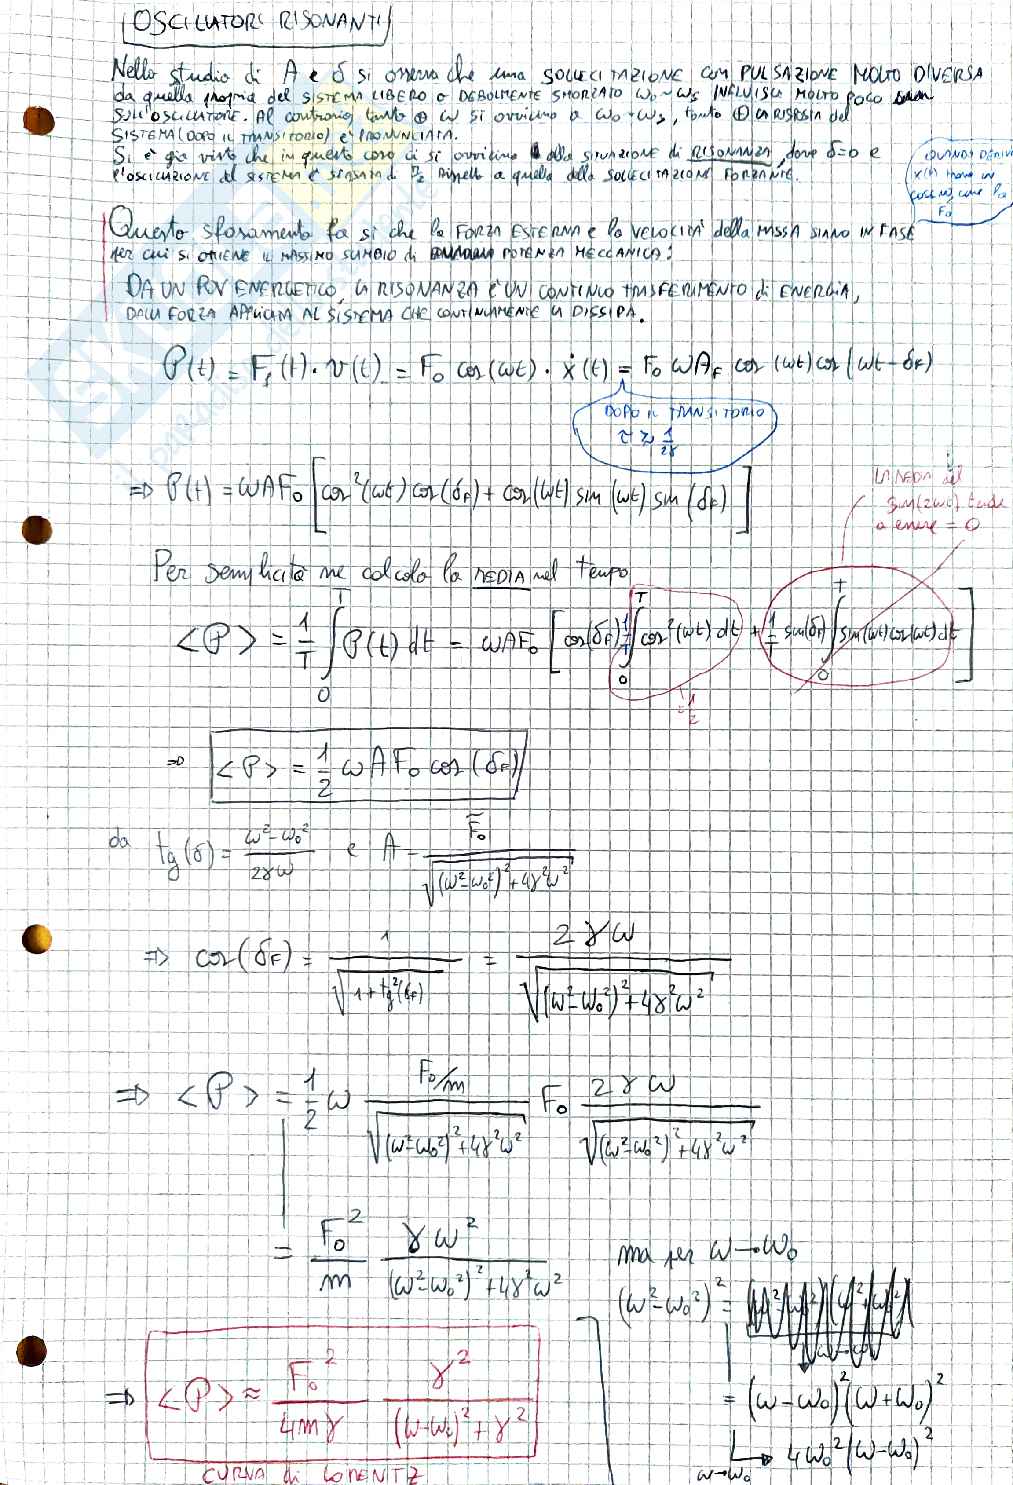 OSCILLATORI RISONANTI
Nello studio di A e δ si osserva che una SOLLECITAZIONE con PULSAZIONE MOLTO DIVERSA
da quella propria del SISTEMA LIBERO o DEBOLMENTE SMORZATO ω₀ ~ ωs INFLUISCE MOLTO poco
SULL'OSCILLATORE. Al contrario, tanto ⊕ ω si avvicina a ω₀ ~ ωs, tanto ⊕ LA RISPOSTA del
SISTEMA (DOPO IL TRANSITORIO) E' PRONUNCIATA.
Si è già visto che in questo caso ci si avvicina alla SITUAZIONE di RISONANZA, dove δ=0 e
l'OSCILLAZIONE del SISTEMA è SFASATA di π/2 RISPETTO a quella della SOLLECITAZIONE FORZANTE.
QUANDO DERIVI
x(t) trovo un
coseno, come la
F₀
Questo sfasamento fa sì che la FORZA ESTERNA e la VELOCITÀ della MASSA SIANO IN FASE
per cui si OTTIENE IL MASSIMO SCAMBIO di POTENZA MECCANICA!
DA UN POV ENERGETICO, LA RISONANZA E' UN CONTINUO TRASFERIMENTO di ENERGIA,
DALLA FORZA APPLICATA AL SISTEMA CHE CONTINUAMENTE LA DISSIPA.
P(t) = Fs(t) · v(t) = F₀ cos(ωt) · ẋ(t) = F₀ ωA_F cos(ωt) cos(ωt-δF)
DOPO IL TRANSITORIO
τ ≈ 1/2γ
⇒ P(t) = ωAF₀ [cos²(ωt) cos(δF) + cos(ωt) sin(ωt) sin(δF)]
LA MEDIA del
sin(2ωt) tende
a essere = 0
Per semplicità ne calcolo la MEDIA nel tempo
<P> = 1/T ∫₀ᵀ P(t) dt = ωAF₀ [cos(δF) 1/T ∫₀ᵀ cos²(ωt) dt + 1/T sin(δF) ∫₀ᵀ sin(ωt) cos(ωt) dt]
= 1/2
⇒ <P> = 1/2 ω A F₀ cos(δF)
da tg(δ) = (ω²-ω₀²)/(2γω) e A = F̃₀/√((ω²-ω₀²)²+4γ²ω²)
⇒ cos(δF) = 1/√(1+tg²(δF)) = 2γω/√((ω²-ω₀²)²+4γ²ω²)
⇒ <P> = 1/2 ω (F₀/m)/√((ω²-ω₀²)²+4γ²ω²) F₀ 2γω/√((ω²-ω₀²)²+4γ²ω²)
= F₀²/m γω²/((ω²-ω₀²)²+4γ²ω²)
ma per ω→ω₀
(ω²-ω₀²)² =
= (ω-ω₀)²(ω+ω₀)²
ω→ω₀ → 4ω₀²(ω-ω₀)²
⇒ <P> ≈ F₀²/4mγ γ²/((ω-ω₀)²+γ²)
CURVA di LORENTZ